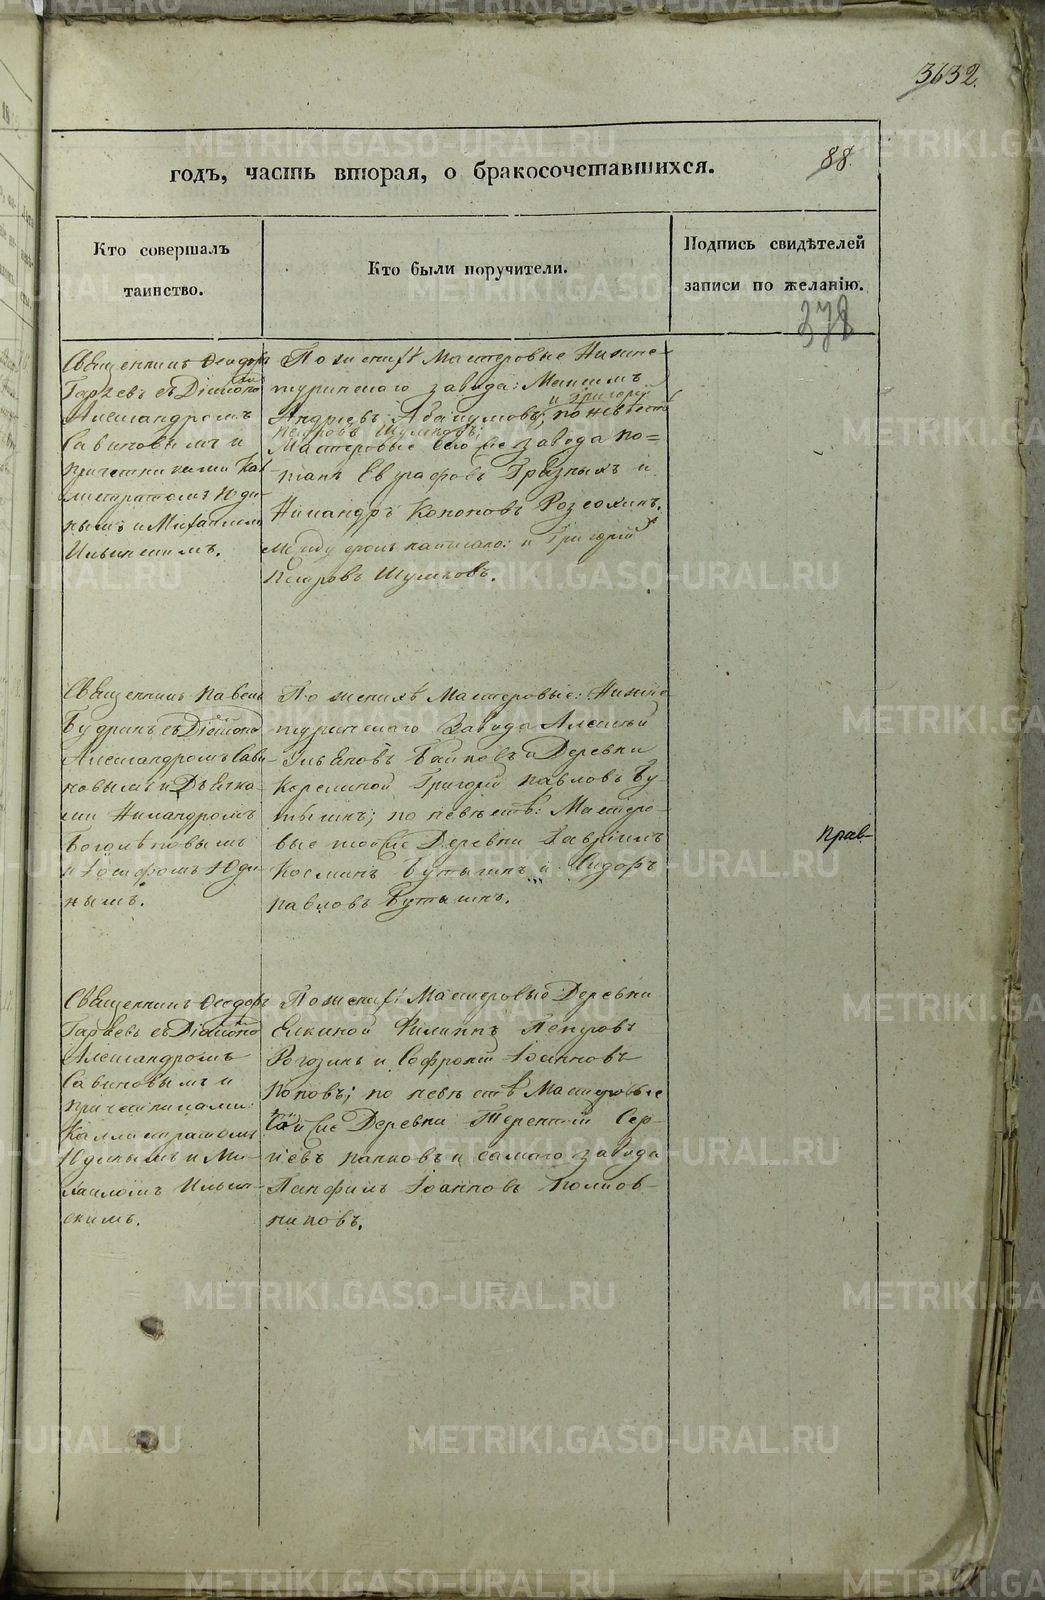 3632.
88.
годъ, часть вторая, о бракосочетавшихся.
Кто совершалъ
таинство.
Кто были поручители.
Подпись свидѣтелей
записи по желанію.
378
Священникъ Ѳеодоръ
Гаряевъ съ Діакономъ
Александромъ
Савиновымъ и
причетниками Кал
листратомъ Юди-
нымъ и Михаиломъ
Ильинскимъ.
По женихѣ Мастеровые Нижне-
туринскаго завода: Максимъ
и Григорій
Андреевъ Абакумовъ; по невѣстѣ
Петровъ Шумковъ;
Мастеровые завода По=
тапъ Евграфовъ Грязныхъ и
Никандръ Кононовъ Розсохинъ.
Между строкъ написано: и Григорій
Петровъ Шумковъ.
Священникъ Павелъ
Будринъ съ Діакономъ
Александромъ Сави-
новымъ и Дьячка-
ми Никандромъ
Боголѣповымъ
и Іосифомъ Юди-
нымъ.
По женихѣ Мастеровые: Нижне
туринскаго Завода Алексѣй
Ульяновъ Байновъ и Деревни
Корелиной Григорій Павловъ Бу-
тыгинъ; по невѣстѣ: Мастеро-
вые той же Деревни Гавріилъ
Косминъ Бутыгинъ и Сидоръ
Павловъ Бутыгинъ.
Прав-
Священникъ Ѳеодоръ
Гаряевъ съ Діакономъ
Александромъ
Савиновымъ и
причетниками:
Каллистратомъ
Юдинымъ и Ми-
хаиломъ Ильин-
скимъ.
По женихѣ Мастеровые Деревни
Елкиной Филиппъ Петровъ
Рогозинъ и Софроній Іоанновъ
Поповъ; по невѣстѣ Мастеровые
той же Деревни Терентій Сер-
гіевъ Папковъ и самаго завода
Панфилъ Іоанновъ Полков-
никовъ.
METRIKI.GASO-URAL.RU